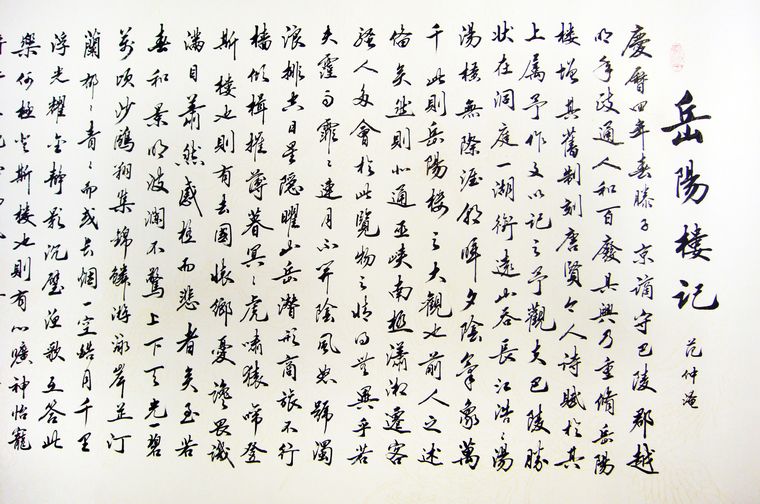 岳陽樓記
范仲淹
慶曆四年春滕子京謫守巴陵郡越
明年政通人和百廢具興乃重脩岳陽
樓增其舊制刻唐賢今人詩賦於其
上属予作文以記之予觀夫巴陵勝
狀在洞庭一湖銜遠山吞長江浩〻湯
湯橫無際涯朝暉夕陰氣象萬
千此則岳陽樓之大觀也前人之述
備矣然則北通巫峽南極瀟湘遷客
騷人多會於此覽物之情得無異乎若
夫霪雨霏〻連月不開陰風怒號濁
浪排空日星隱曜山岳潛形商旅不行
檣傾楫摧薄暮冥〻虎嘯猿啼登
斯樓也則有去國懷鄉憂讒畏譏
滿目蕭然感極而悲者矣至若
春和景明波瀾不驚上下天光一碧
萬頃沙鷗翔集錦鱗游泳岸芷汀
蘭郁〻青〻而或長烟一空皓月千里
浮光耀金靜影沉璧漁歌互答此
樂何極登斯樓也則有心曠神怡寵